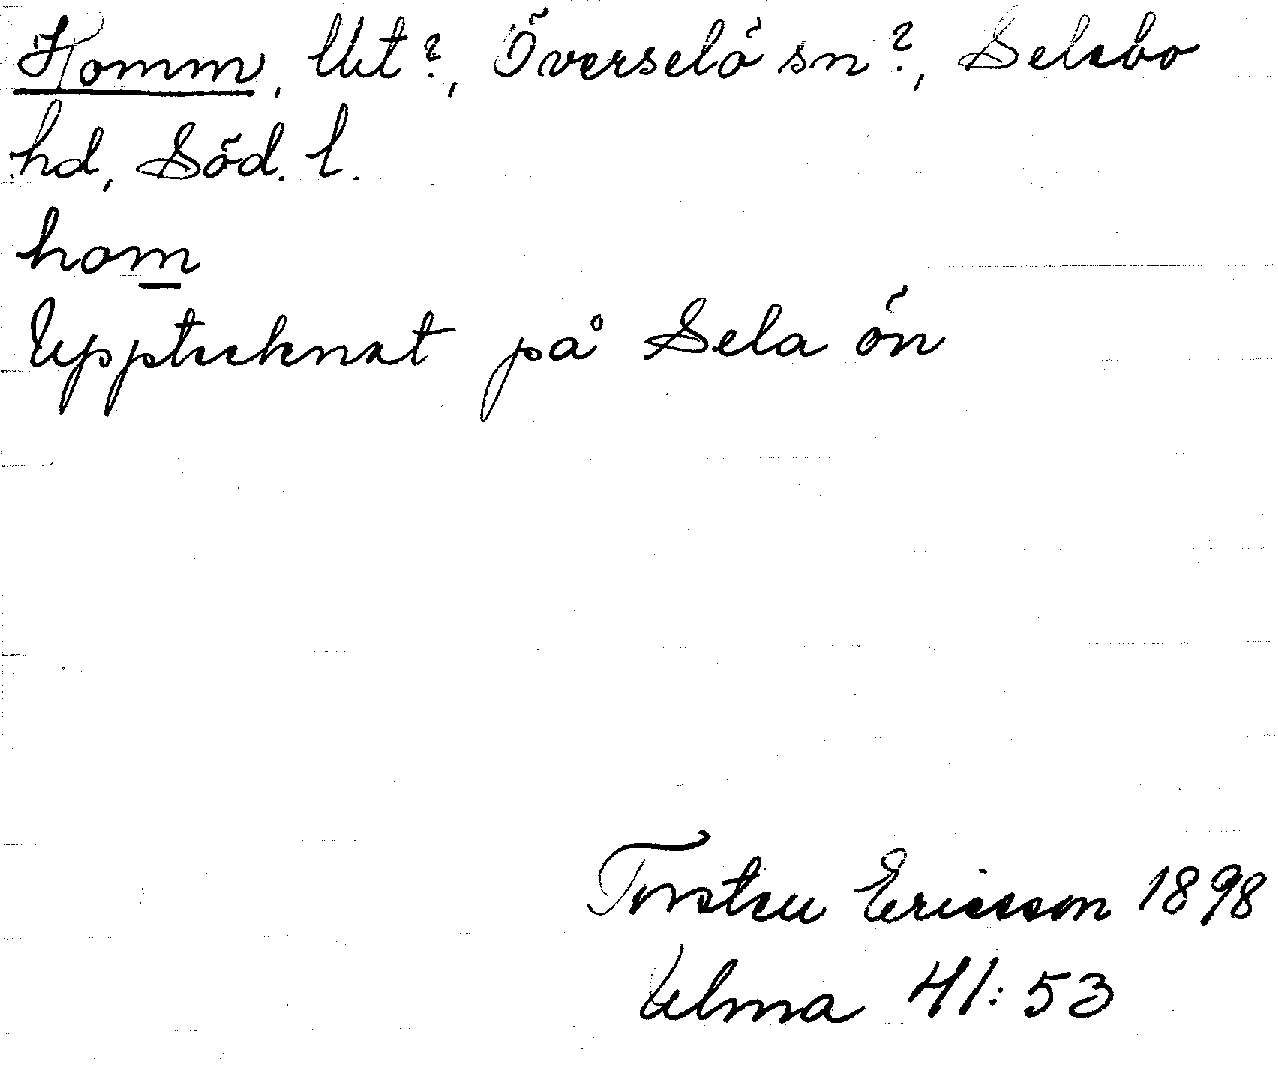 Homm, Ut?, Överselö sn?, Selebo
hd, Söd. l.
hom
Upptecknat på Sela ön
Torsten Ericsson 1898
Ulma 41:53